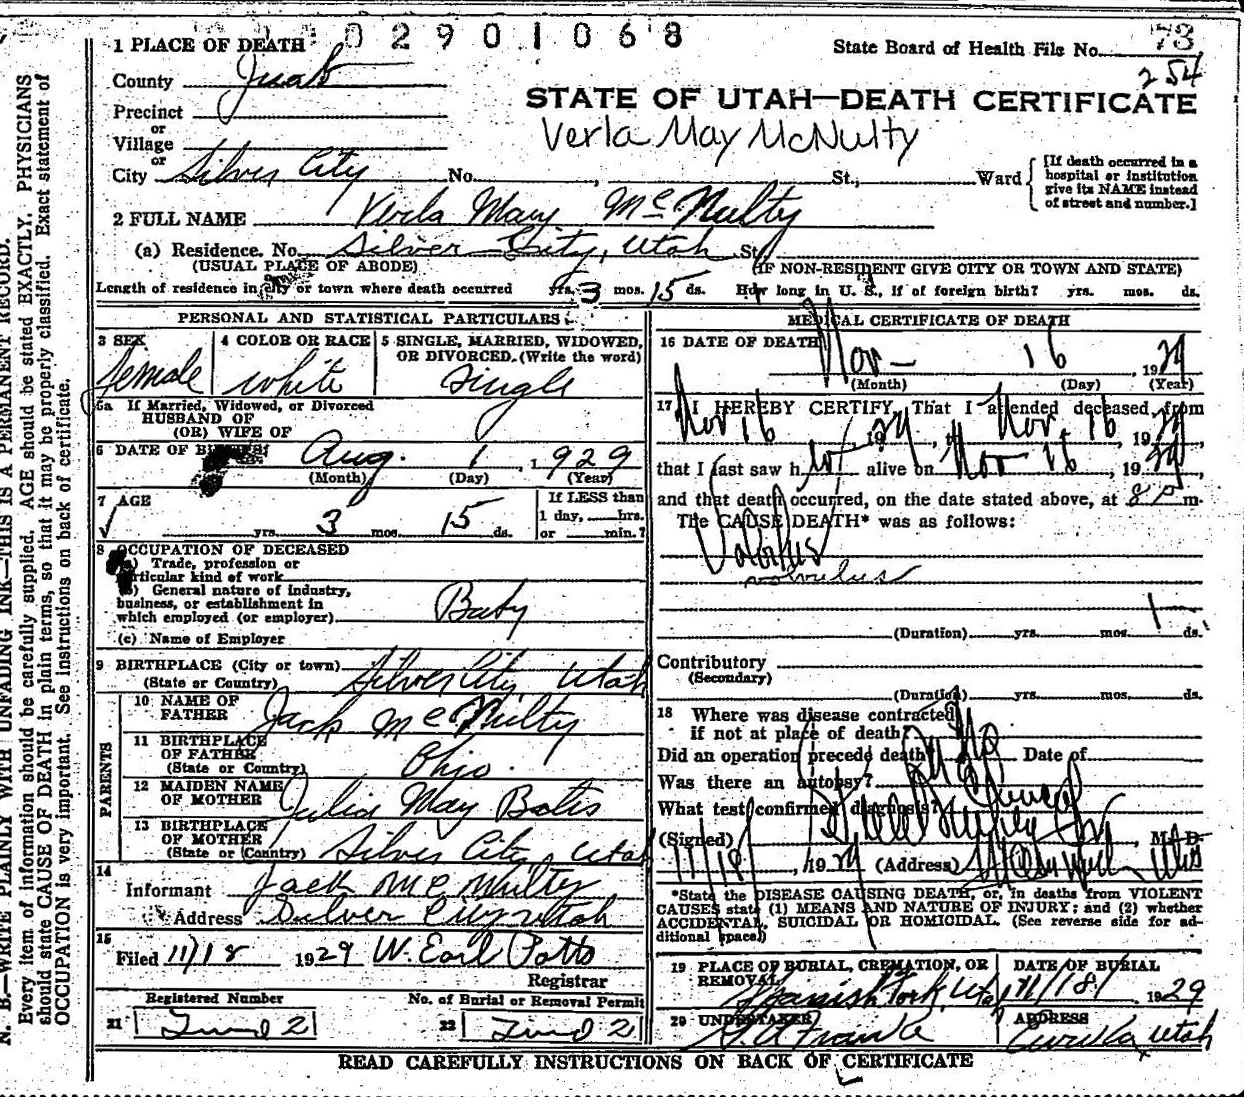 02901068
1 PLACE OF DEATH
State Board of Health File No. 73
254
County Juab
STATE OF UTAH—DEATH CERTIFICATE
Precinct
or
Verla May McNulty
Village
or
City Silver City No. , St., Ward
[If death occurred in a
hospital or institution
give its NAME instead
of street and number.]
2 FULL NAME Verla May McNulty
(a) Residence. No. Silver City, Utah St.
(USUAL PLACE OF ABODE) (IF NON-RESIDENT GIVE CITY OR TOWN AND STATE)
Length of residence in city or town where death occurred yrs. 3 mos. 15 ds. How long in U. S., if of foreign birth? yrs. mos. ds.
PERSONAL AND STATISTICAL PARTICULARS
3 SEX 4 COLOR OR RACE 5 SINGLE, MARRIED, WIDOWED,
OR DIVORCED. (Write the word)
female white Single
6a If Married, Widowed, or Divorced
HUSBAND OF
(OR) WIFE OF
6 DATE OF BIRTH Aug. 1, 1929
(Month) (Day) (Year)
7 AGE If LESS than
1 day, hrs.
yrs. 3 mos. 15 ds. or min.?
8 OCCUPATION OF DECEASED
(a) Trade, profession or
particular kind of work
(b) General nature of industry,
business, or establishment in
which employed (or employer) Baby
(c) Name of Employer
9 BIRTHPLACE (City or town) Silver City, Utah
(State or Country)
PARENTS
10 NAME OF
FATHER Jack McNulty
11 BIRTHPLACE
OF FATHER Ohio.
(State or Country)
12 MAIDEN NAME
OF MOTHER Julia May Bates
13 BIRTHPLACE
OF MOTHER
(State or Country) Silver City, Utah
14
Informant Jack McNulty
Address Silver City Utah
15
Filed 11/18 1929 W. Earl Potts
Registrar
Registered Number No. of Burial or Removal Permit
21 22
MEDICAL CERTIFICATE OF DEATH
16 DATE OF DEATH
Nov— 16, 1929
(Month) (Day) (Year)
17 I HEREBY CERTIFY, That I attended deceased from
Nov 16 1929, to Nov 16, 1929,
that I last saw her alive on Nov 16, 1929,
and that death occurred, on the date stated above, at 8 P m.
The CAUSE DEATH* was as follows:
Volvulus
volvulus
1
(Duration) yrs. mos. ds.
Contributory
(Secondary)
(Duration) yrs. mos. ds.
18 Where was disease contracted
if not at place of death?
Did an operation precede death? No Date of
Was there an autopsy? No
What test confirmed diagnosis? Clinical
(Signed) , M. D.
11/18, 1929 (Address)
*State the DISEASE CAUSING DEATH, or, in deaths from VIOLENT
CAUSES state (1) MEANS AND NATURE OF INJURY; and (2) whether
ACCIDENTAL, SUICIDAL OR HOMICIDAL. (See reverse side for ad-
ditional space.)
19 PLACE OF BURIAL, CREMATION, OR DATE OF BURIAL
REMOVAL
Spanish Fork, Utah 11/18/ 1929
20 UNDERTAKER ADDRESS
Franke Eureka, Utah
READ CAREFULLY INSTRUCTIONS ON BACK OF CERTIFICATE
N. B.—WRITE PLAINLY WITH UNFADING INK—THIS IS A PERMANENT RECORD.
Every item of information should be carefully supplied. AGE should be stated EXACTLY. PHYSICIANS
should state CAUSE OF DEATH in plain terms, so that it may be properly classified. Exact statement of
OCCUPATION is very important. See instructions on back of certificate.